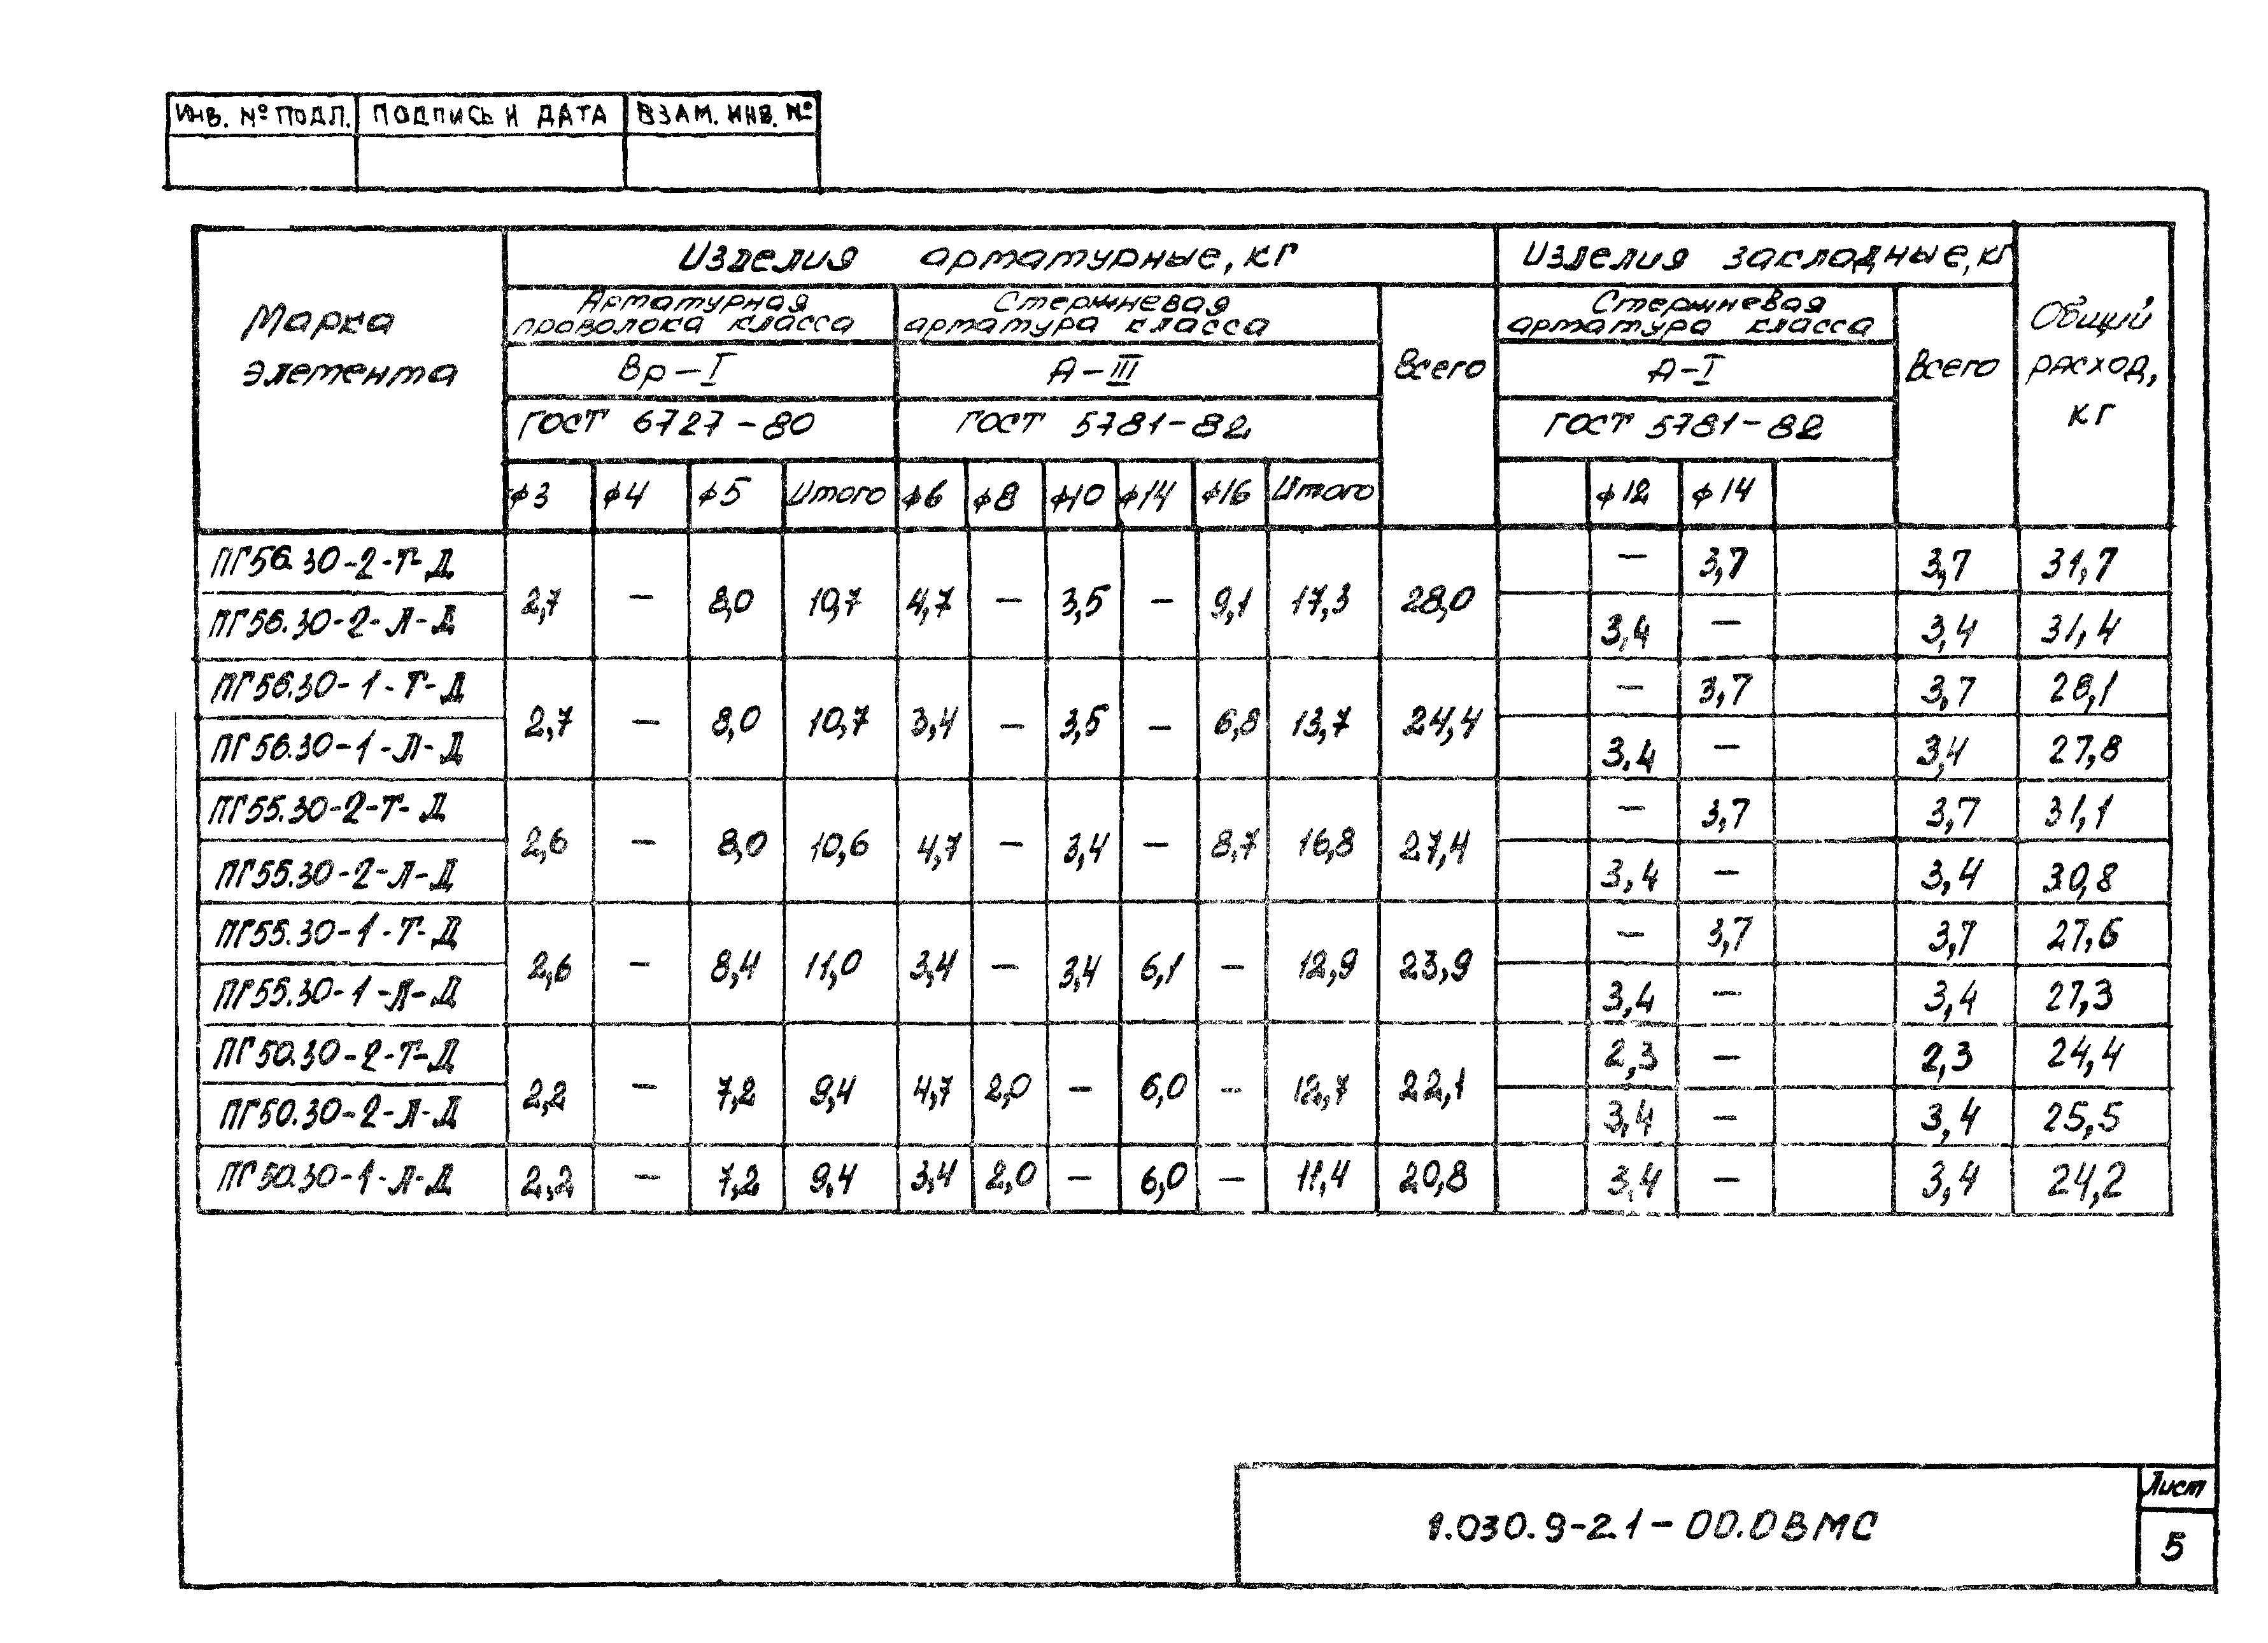 ИНВ. № ПОДЛ. ПОДПИСЬ И ДАТА ВЗАМ. ИНВ. №
Марка элемента
Изделия арматурные, кг
Изделия закладные, кг
Общий расход, кг
Арматурная проволока класса
Стержневая арматура класса
Всего
Стержневая арматура класса
Всего
Вр-I А-III А-I
ГОСТ 6727-80 ГОСТ 5781-82 ГОСТ 5781-82
ф3 ф4 ф5 Итого ф6 ф8 ф10 ф14 ф16 Итого ф12 ф14
ПГ56.30-2-Т-Д 2,7 — 8,0 10,7 4,7 — 3,5 — 9,1 17,3 28,0 — 3,7 3,7 31,7
ПГ56.30-2-Л-Д 3,4 — 3,4 31,4
ПГ56.30-1-Т-Д 2,7 — 8,0 10,7 3,4 — 3,5 — 6,8 13,7 24,4 — 3,7 3,7 28,1
ПГ56.30-1-Л-Д 3.4 — 3,4 27,8
ПГ55.30-2-Т-Д 2,6 — 8,0 10,6 4,7 — 3,4 — 8,7 16,8 27,4 — 3,7 3,7 31,1
ПГ55.30-2-Л-Д 3,4 — 3,4 30,8
ПГ55.30-1-Т-Д 2,6 — 8,4 11,0 3,4 — 3,4 6,1 — 12,9 23,9 — 3,7 3,7 27,6
ПГ55.30-1-Л-Д 3,4 — 3,4 27,3
ПГ50.30-2-Т-Д 2,2 — 7,2 9,4 4,7 2,0 — 6,0 — 12,7 22,1 2,3 — 2,3 24,4
ПГ50.30-2-Л-Д 3,4 — 3,4 25,5
ПГ50.30-1-Л-Д 2,2 — 7,2 9,4 3,4 2,0 — 6,0 — 11,4 20,8 3,4 — 3,4 24,2
1.030.9-2.1-00.0ВМС
Лист
5